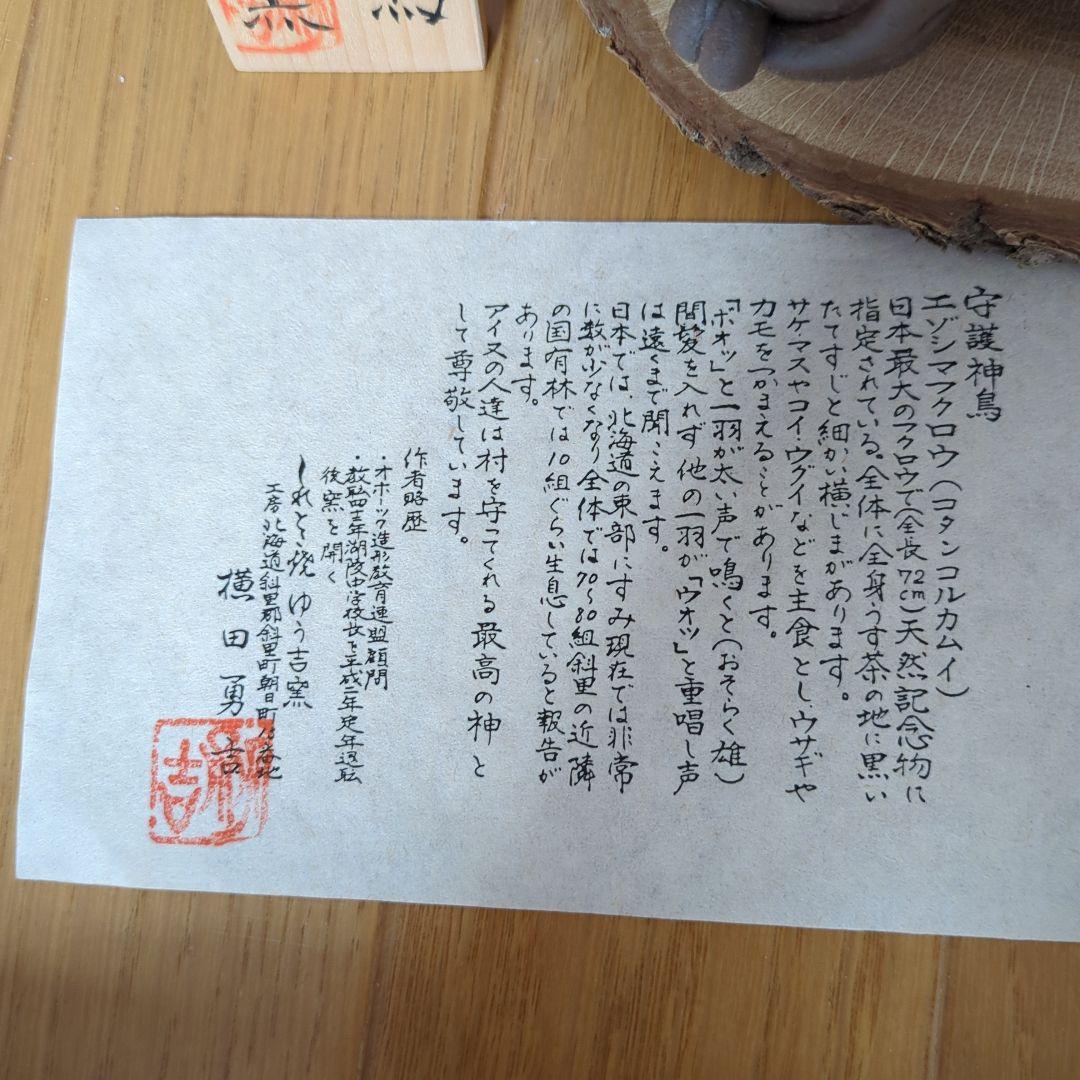 守護神鳥
エゾシマフクロウ(コタンコルカムイ)
日本最大のフクロウで(全長72cm)天然記念物に
指定されている。全体に全身うす茶の地に黒い
たてすじと細かい横じまがあります。
サケ・マスやコイ・ウグイなどを主食とし、ウサギや
カモをつかまえることがあります。
「ボオッ」と一羽が太い声で鳴くと(おそらく雄)
間髪を入れず他の一羽が「ウオッ」と重唱し声
は遠くまで聞こえます。
日本では、北海道の東部にすみ現在では非常
に数が少なくなり全体では70~80組斜里の近隣
の国有林では10組ぐらい生息していると報告が
あります。
アイヌの人達は村を守ってくれる最高の神と
して尊敬しています。
作者略歴
・オホーツク造形教育連盟顧問
・教職四三年湖陵中学校長を平成二年定年退職
後窯を開く
しれとこ焼ゆう吉窯
工房北海道斜里郡斜里町朝日町18番地
横田勇吉